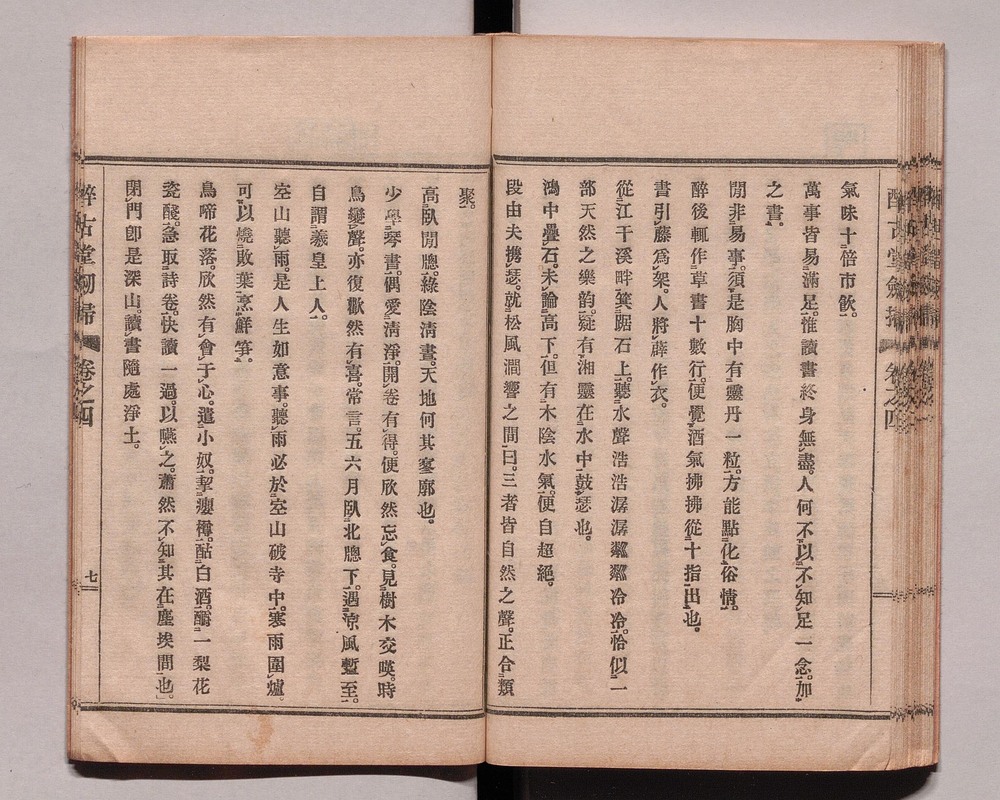 氣味十倍市飲。
萬事皆易滿足。惟讀書終身無盡。人何不以不知足一念。加
之書。
閒非易事。須是胸中有靈丹一粒。方能點化俗情。
醉後輒作草書十數行。便覺酒氣拂拂從十指出也。
書引藤爲架。人將薜作衣。
從江干溪畔箕踞石上。聽水聲浩浩潺潺粼粼冷冷。恰似一
部天然之樂韵。疑有湘靈在水中鼓瑟也。
鴻中疊石。未論高下。但有木陰水氣。便自超絕。
段由夫携瑟。就松風澗響之間。曰。三者皆自然之聲。正合類
聚。
高臥閒牕。綠陰淸晝。天地何其寥廓也。
少學琴書。偶愛淸淨。開卷有得。便欣然忘食。見樹木交暎。時
鳥變聲。亦復歡然有喜。常言。五六月臥北牕下。遇凉風暫至。
自謂羲皇上人。
空山聽雨。是人生如意事。聽雨必於空山破寺中。寒雨圍爐。
可以燒敗葉。烹鮮笋。
鳥啼花落。欣然有會于心。遣小奴。挈癭樽。酤白酒。釂一梨花
瓷醆。急取詩卷。快讀一過。以嚥之。蕭然不知其在塵埃間也。
閉門卽是深山。讀書隨處淨土。
醉古堂劒掃
卷之四
七